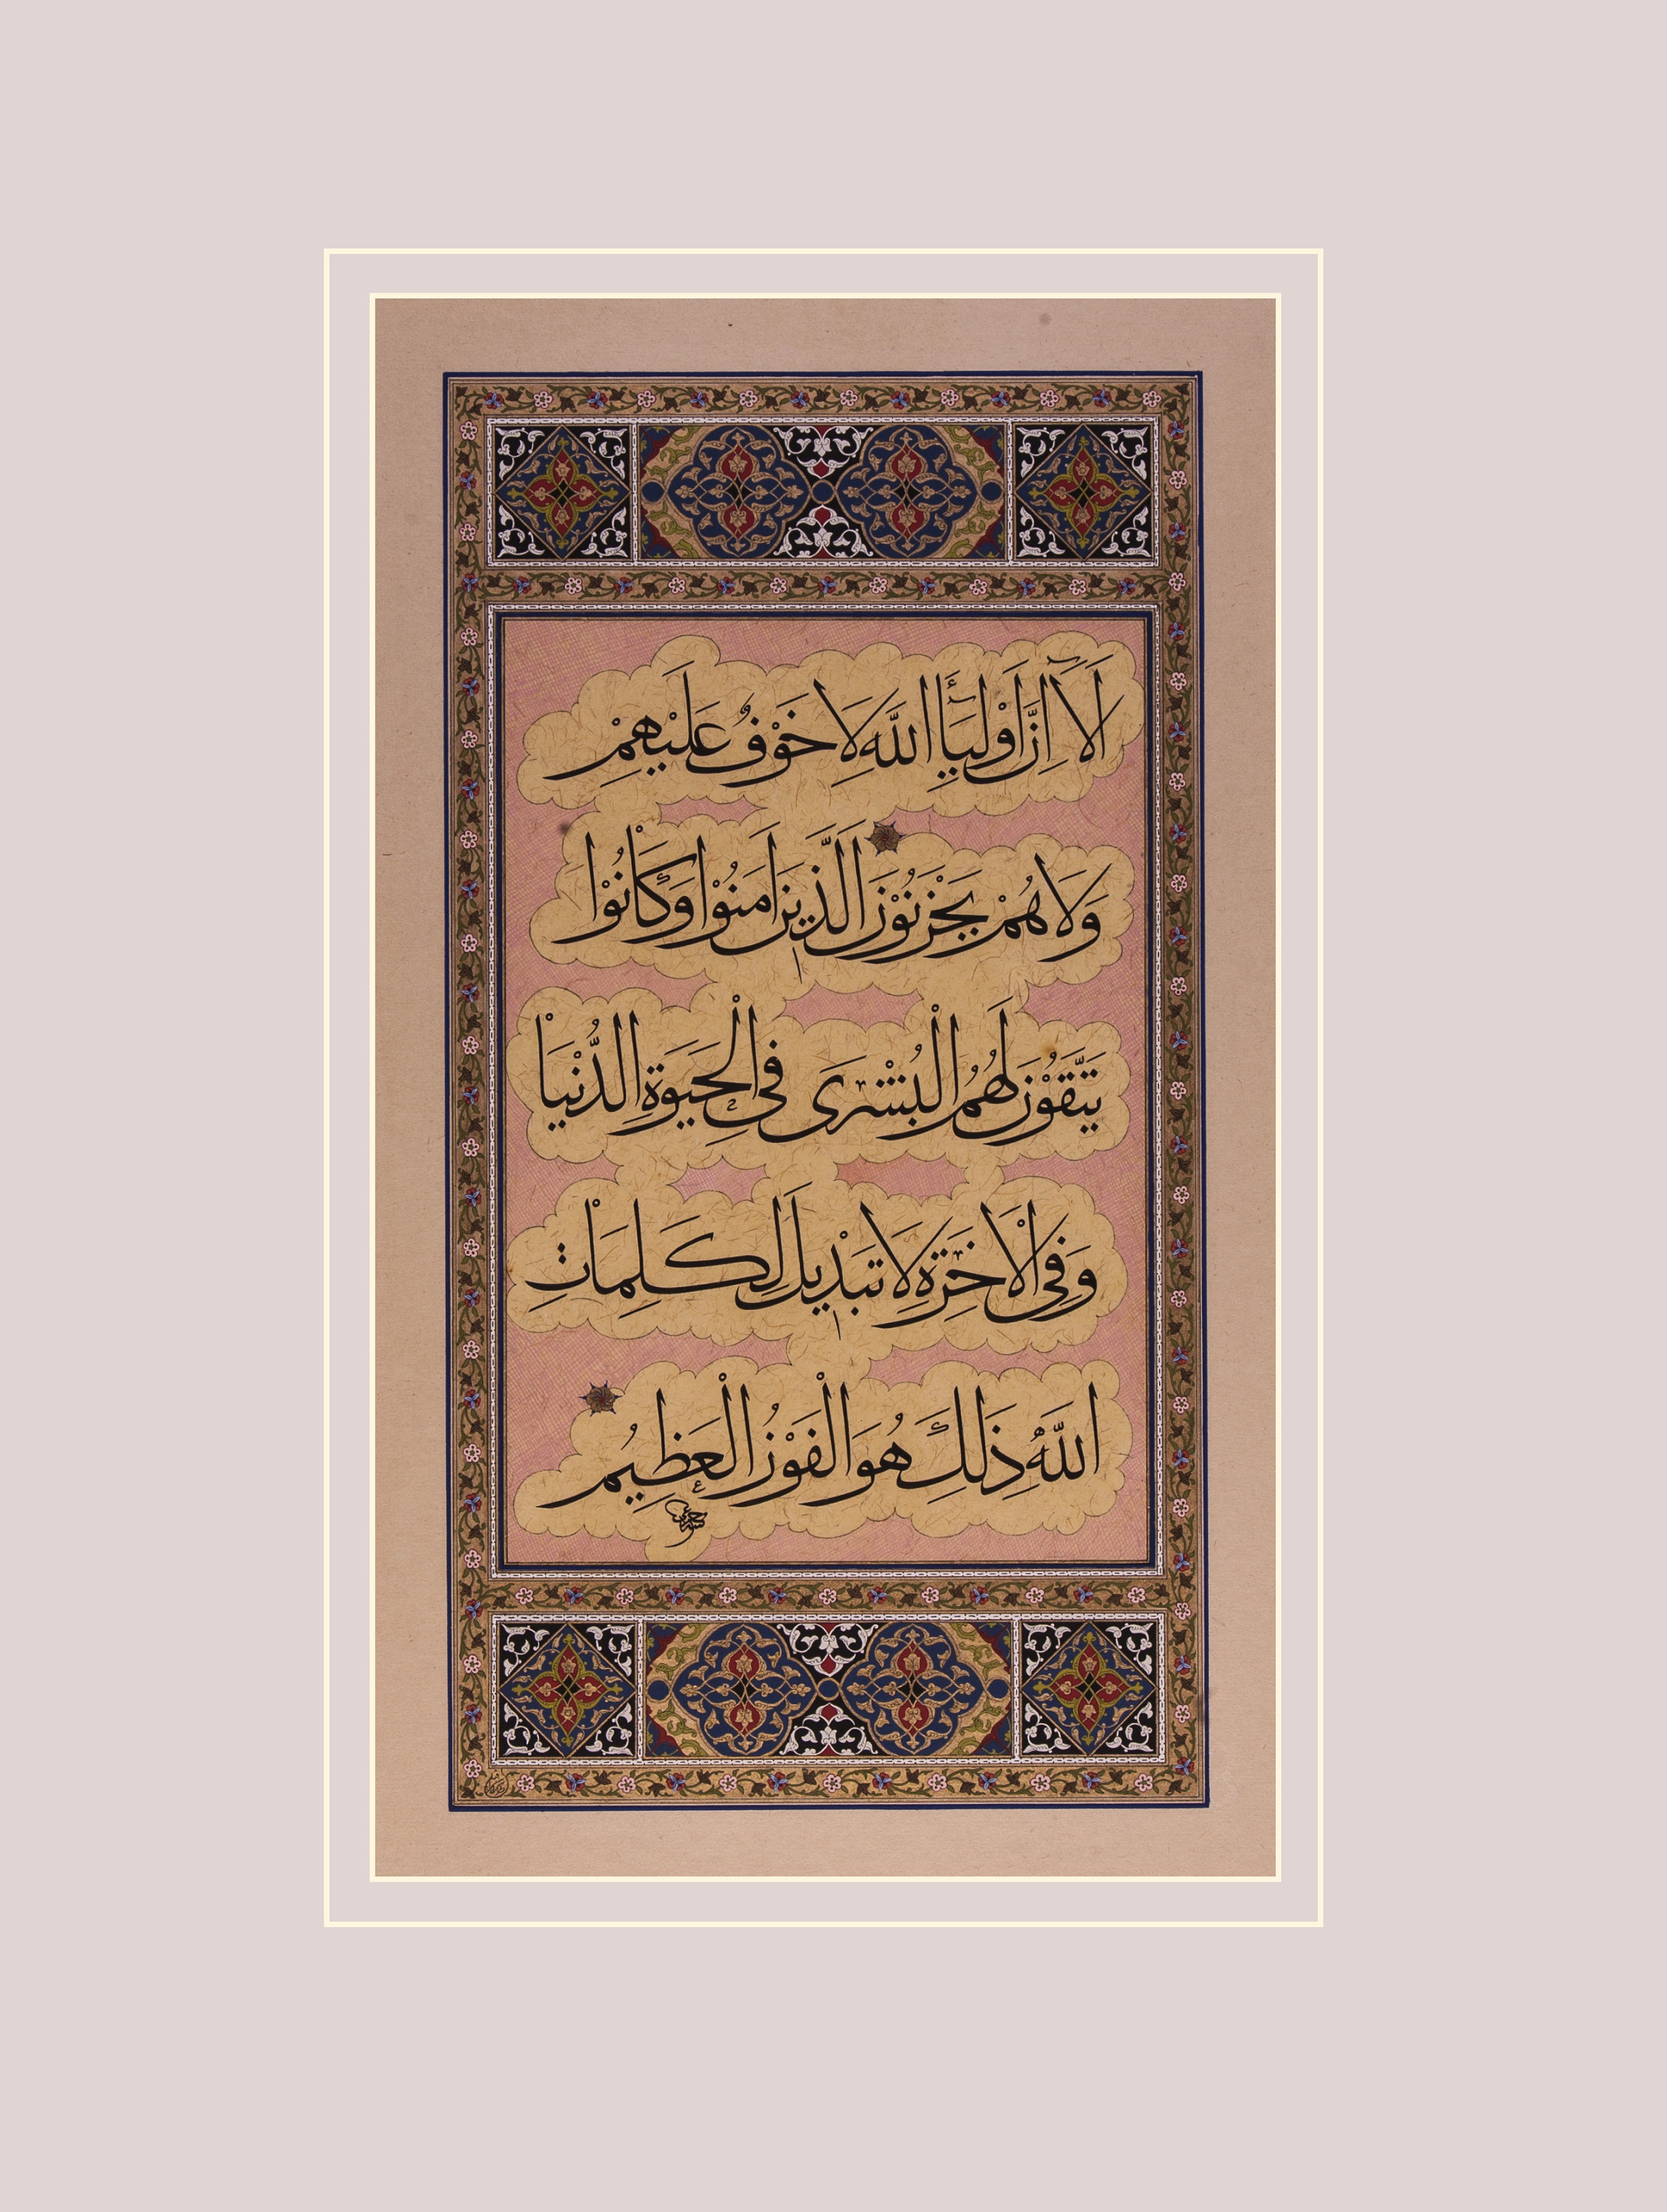 اَلَآ اِنَّ اَوْلِيَٓاءَ اللَّهِ لَا خَوْفٌ عَلَيْهِمْ
وَلَا هُمْ يَحْزَنُوْنَ اَلَّذِينَ اٰمَنُوْا وَكَانُوْا
يَتَّقُوْنَ لَهُمُ الْبُشْرَى فِى الْحَيَوةِ الدُّنْيَا
وَفِى الْاَخِرَةِ لَا تَبْدِيلَ لِكَلِمَاتِ
اللَّهِ ذَلِكَ هُوَ الْفَوْزُ الْعَظِيمُ